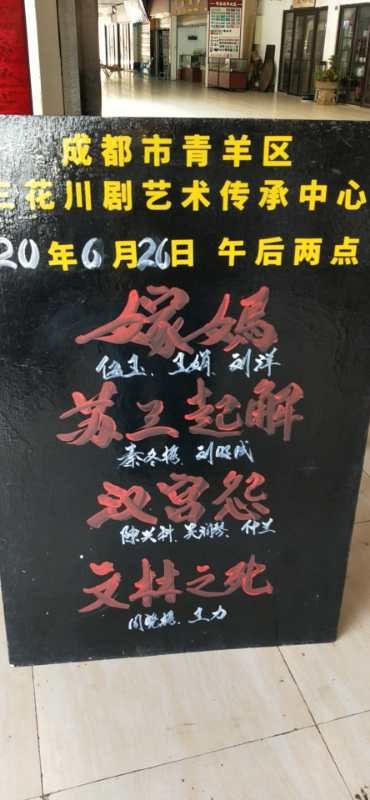 成都市青羊区
三花川剧艺术传承中心
20年6月26日 午后两点
嫁妈
伍玉、王娟、刘洋
苏三起解
秦冬梅、刘昭成
汉宫怨
陈兴科、吴润琴、仲兰
文林之死
闵晓梅、王力